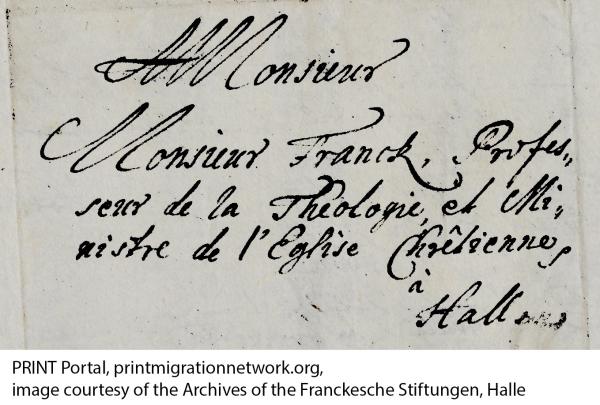 A Monsieur
Monsieur Franck, Profes„
seur de la Théologie, et Mi„
nistre de l'Eglise Chrêtienne,
à
Hall
PRINT Portal, printmigrationnetwork.org,
image courtesy of the Archives of the Franckesche Stiftungen, Halle